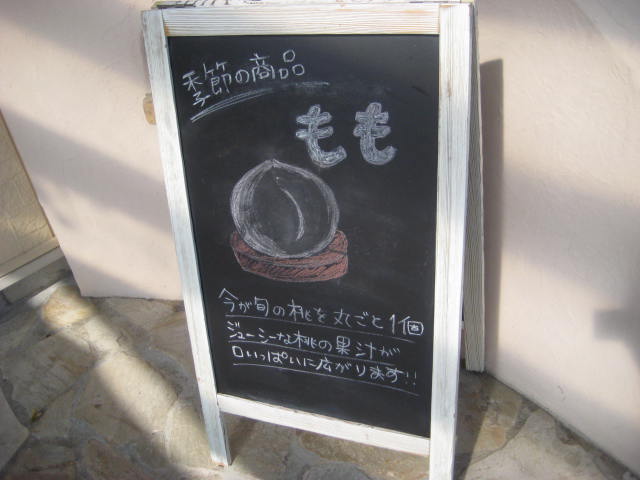 季節の商品
もも
今が旬の桃を丸ごと1個
ジューシーな桃の果汁が
口いっぱいに広がります!!